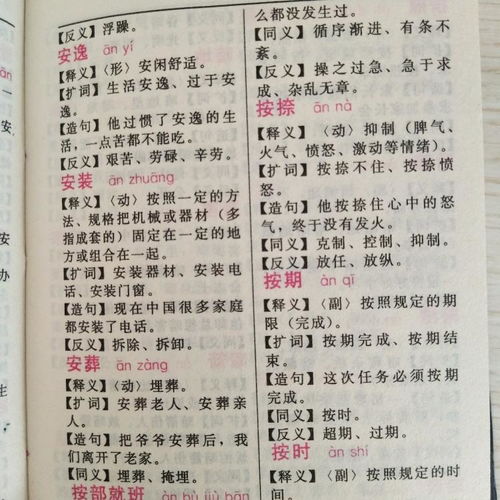 【反义】浮躁。
安逸 ān yì
【释义】〈形〉安闲舒适。
【扩词】生活安逸、过于安
逸。
【造句】他过惯了安逸的生
活，一点苦都不能吃。
【反义】艰苦、劳碌、辛劳。
安装 ān zhuāng
【释义】〈动〉按照一定的方
法、规格把机械或器材（多
指成套的）固定在一定的地
方或组合在一起。
【扩词】安装器材、安装电
话、安装门窗。
【造句】现在中国很多家庭
都安装了电话。
【反义】拆除、拆卸。
安葬 ān zàng
【释义】〈动〉埋葬。
【扩词】安葬老人、安葬亲
人。
【造句】把爷爷安葬后，我
们离开了老家。
【同义】埋葬、掩埋。
按部就班 àn bù jiù bān
么都没发生过。
【同义】循序渐进、有条不
紊。
【反义】操之过急、急于求
成、杂乱无章。
按捺 àn nà
【释义】〈动〉抑制（脾气、
火气、愤怒、激动等情绪）。
【扩词】按捺不住、按捺愤
怒。
【造句】他按捺住心中的怒
气，终于没有发火。
【同义】克制、控制、抑制。
【反义】放任、放纵。
按期 àn qī
【释义】〈副〉按照规定的期
限（完成）。
【扩词】按期完成、按期结
束。
【造句】这次任务必须按期
完成。
【同义】按时。
【反义】超期、过期。
按时 àn shí
【释义】〈副〉按照规定的时
间。
安
安
办
生